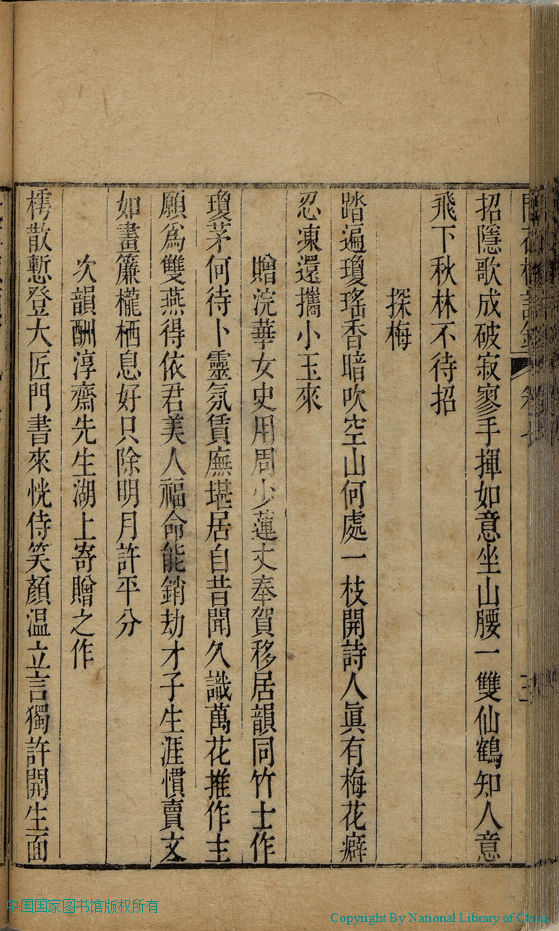 招隱歌成破寂寥手揮如意坐山腰一雙仙鶴知人意
飛下秋林不待招
探梅
踏遍瓊瑤香暗吹空山何處一枝開詩人眞有梅花癖
忍凍還攜小玉來
贈浣華女史用周少蓮丈奉賀移居韻同竹士作
瓊茅何待卜靈氛賃廡堪居自昔聞久識萬花推作主
願爲雙燕得依君美人福命能銷劫才子生涯慣賣文
如畫簾櫳栖息好只除明月許平分
次韻酬淳齋先生湖上寄贈之作
樗散慙登大匠門書來恍侍笑顏溫立言獨許開生面
中国国家图书馆版权所有
Copyright By National Library of China